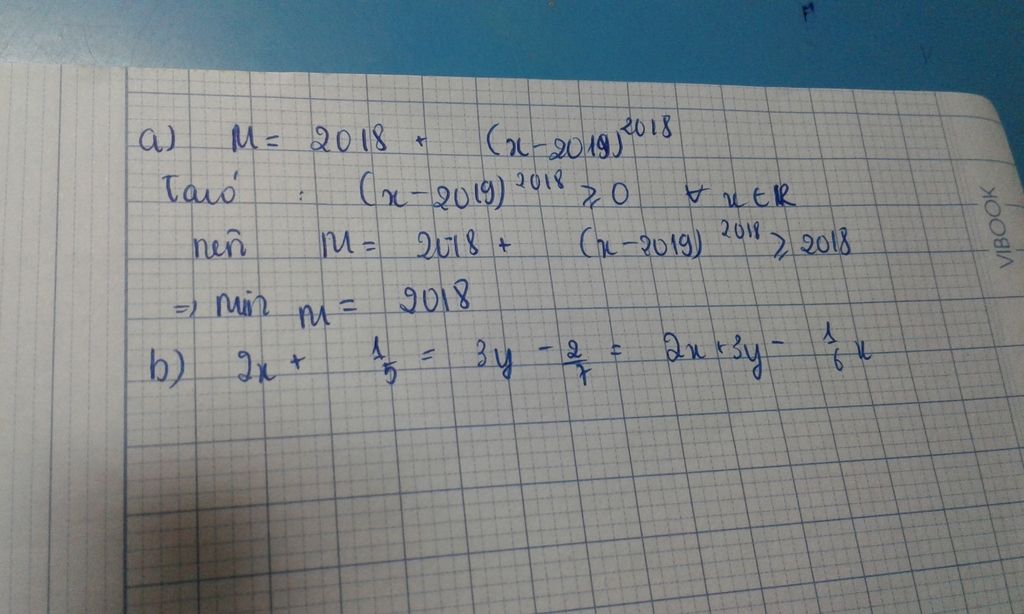 a) M = 2018 + (x-2019)^2018
Ta có : (x-2019)^2018 ⩾ 0 ∀ x ∈ R
nên M = 2018 + (x-2019)^2018 ⩾ 2018
=> Min M = 2018
b) 2x + 1/5 = 3y - 2/7 = 2x + 3y - 1/6 x
VIBOOK